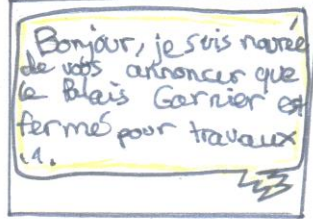 Bonjour, je suis navrée
de vous annoncer que
le Palais Garnier est
fermé pour travaux
.1.